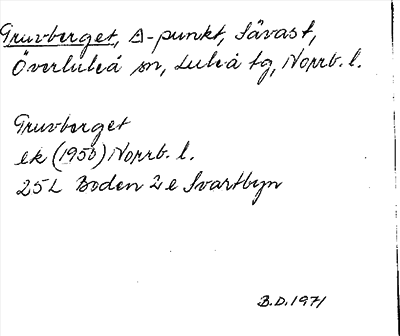 Gruvberget, △-punkt, Sävast,
Överluleå sn, Luleå tg, Norrb. l.
Gruvberget
ek (1950) Norrb. l.
25L Boden 2e Svartbyn
B.D. 1971